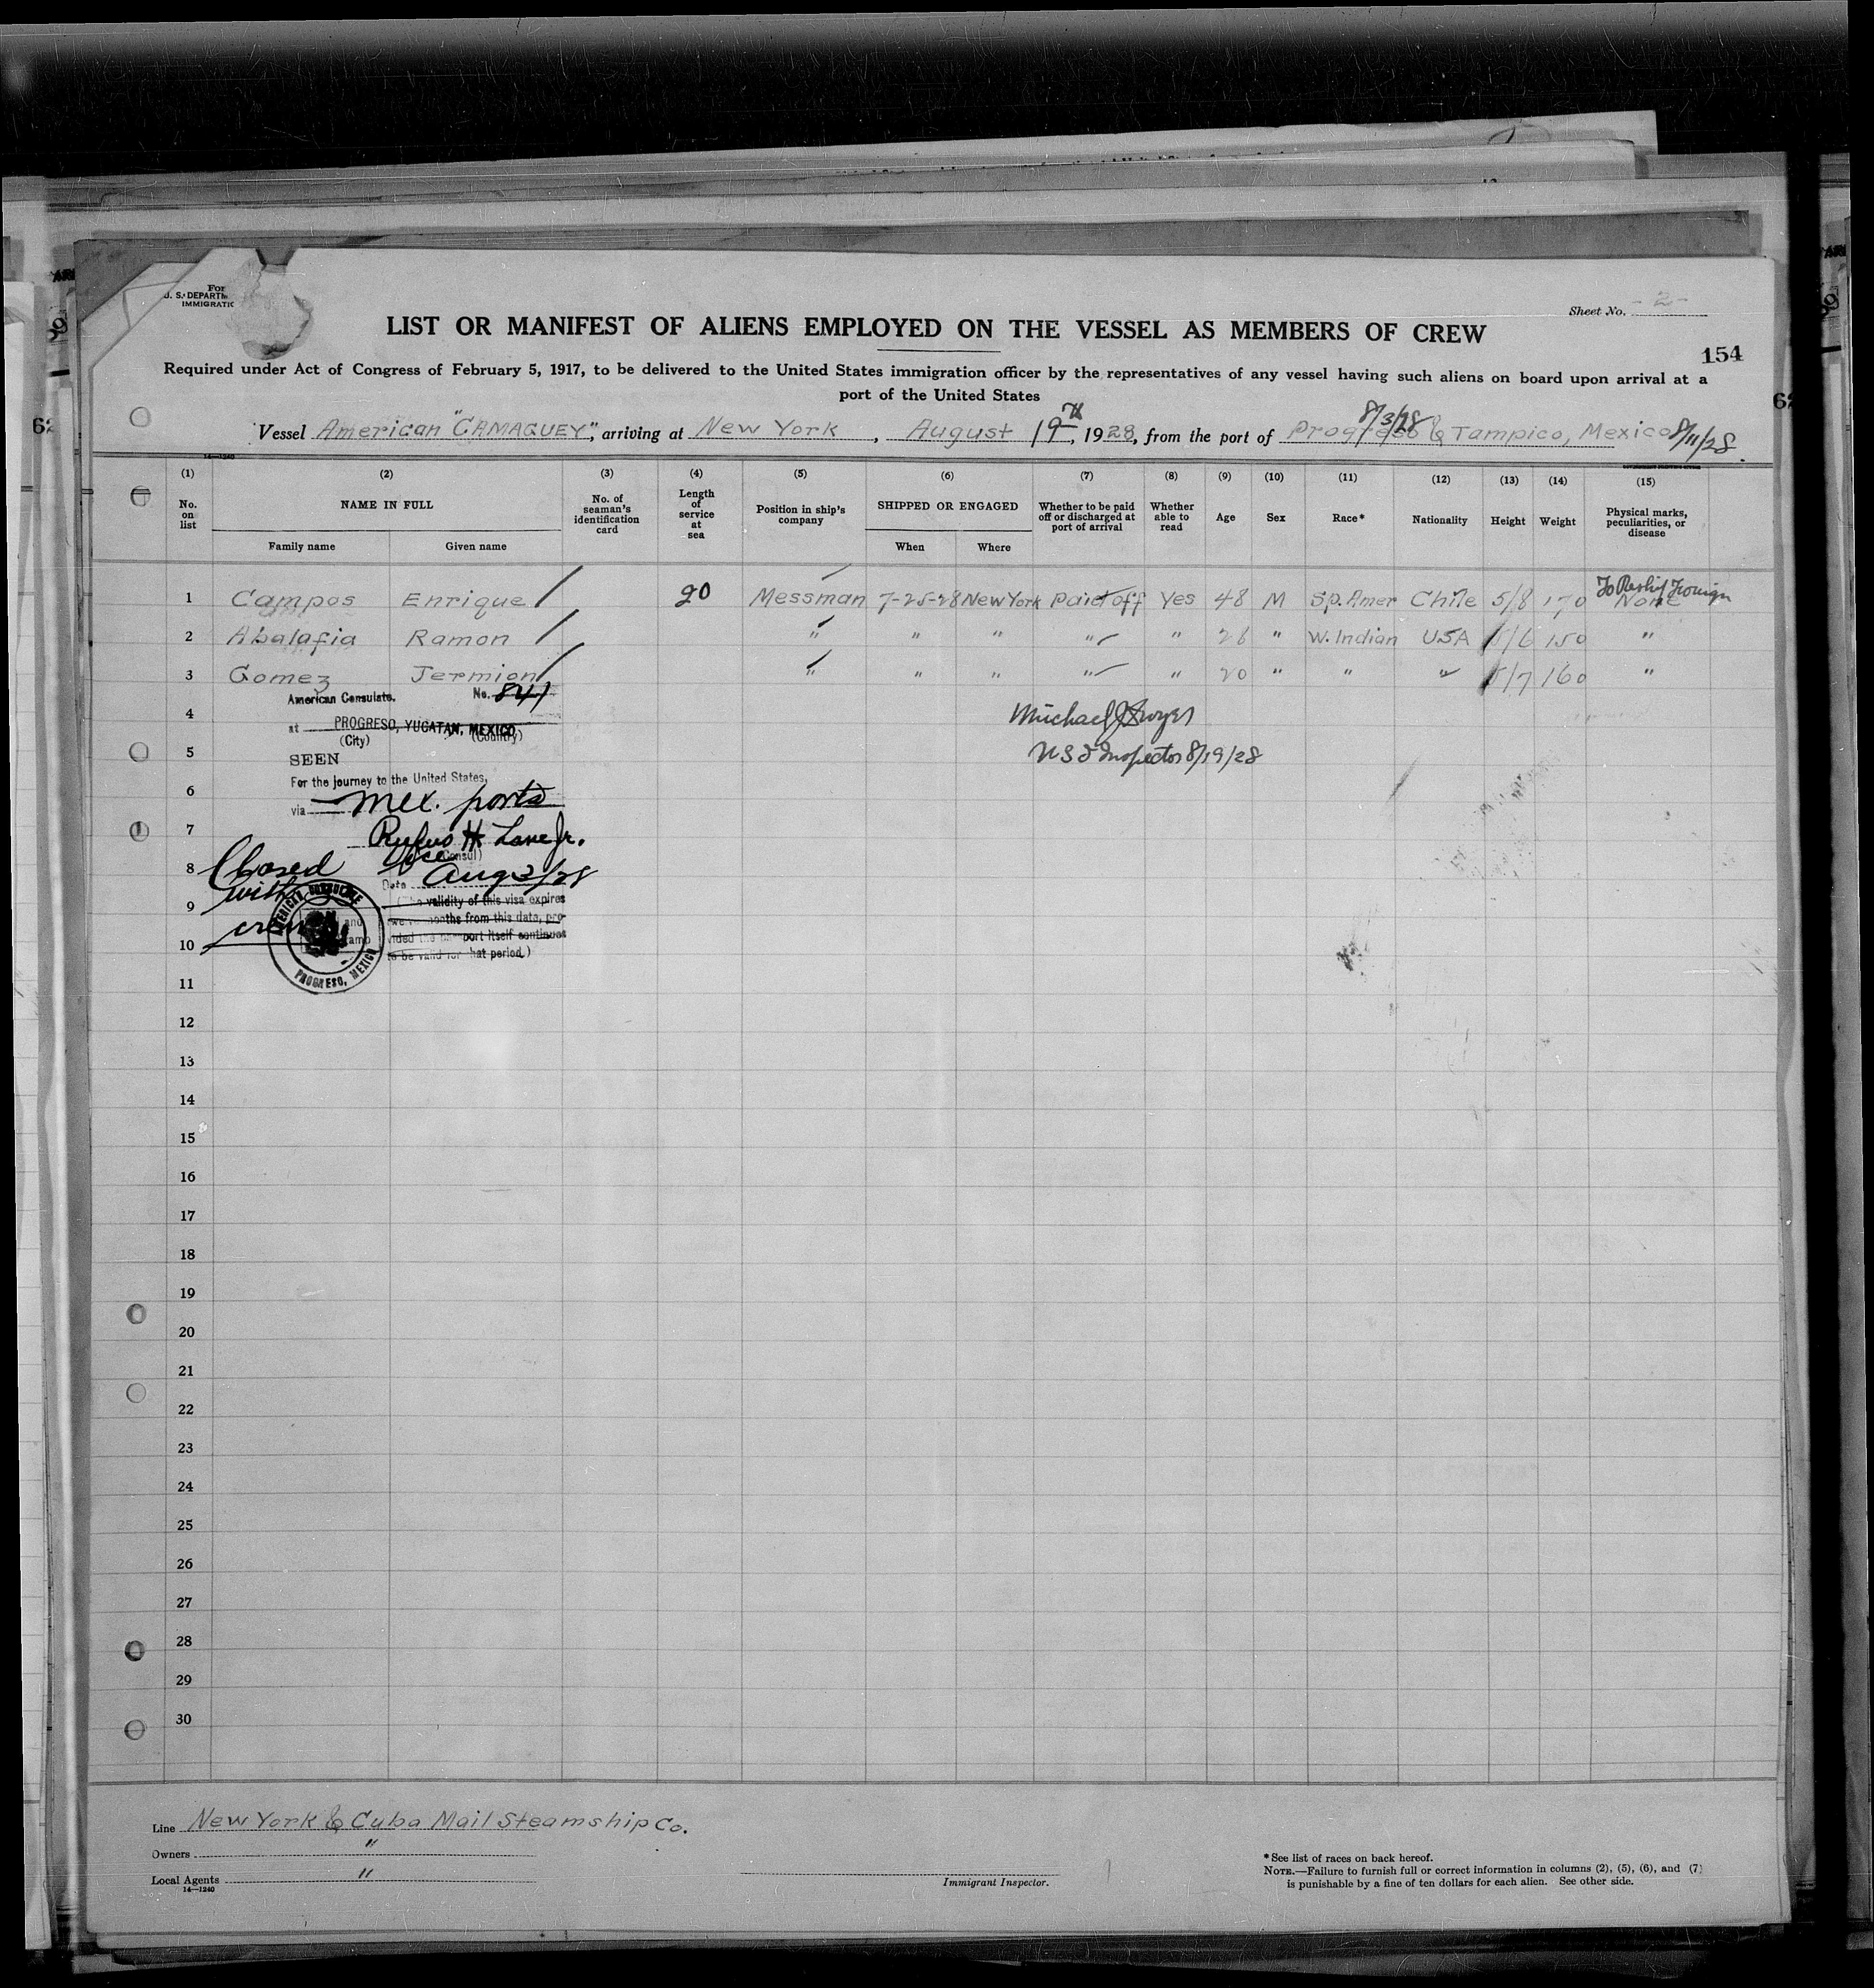 For
U. S. DEPARTM
IMMIGRATIO
Sheet No. - 2 -
LIST OR MANIFEST OF ALIENS EMPLOYED ON THE VESSEL AS MEMBERS OF CREW
154
Required under Act of Congress of February 5, 1917, to be delivered to the United States immigration officer by the representatives of any vessel having such aliens on board upon arrival at a
port of the United States
8/3/28
Vessel American "CAMAGUEY", arriving at New York, August 19th, 1928, from the port of Progreso & Tampico, Mexico 8/11/28.
14—1240
(1) (2) (3) (4) (5) (6) (7) (8) (9) (10) (11) (12) (13) (14) (15)
No. on list NAME IN FULL No. of seaman's identification card Length of service at sea Position in ship's company SHIPPED OR ENGAGED Whether to be paid off or discharged at port of arrival Whether able to read Age Sex Race* Nationality Height Weight Physical marks, peculiarities, or disease
Family name Given name When Where
To Reship Foreign
1 Campos Enrique 20 Messman 7-25-28 New York Paid off Yes 48 M Sp. Amer Chile 5/8 170 None
2 Abalafia Ramon " " " " " 26 " W. Indian USA 5/6 150 "
3 Gomez Jermion " " " " " 20 " " " 5/7 160 "
American Consulate. No. 841
4 Michael J Dwyer
at PROGRESO, YUCATAN, MEXICO
(City) (Country)
5 U S I Inspector 8/19/28
SEEN
For the journey to the United States,
6
via Mex. ports
7
Rufus H Lane Jr.
Vice (Consul)
8
Closed with crew
Date Aug 3/28
9
(The validity of this visa expires
twelve months from this date, pro-
vided the passport itself continues
to be valid for that period.)
AMERICAN CONSULATE
PROGRESO, MEXICO
10
11
12
13
14
15
16
17
18
19
20
21
22
23
24
25
26
27
28
29
30
Line New York & Cuba Mail Steamship Co.
Owners "
Local Agents "
14—1240
Immigrant Inspector.
* See list of races on back hereof.
NOTE.—Failure to furnish full or correct information in columns (2), (5), (6), and (7)
is punishable by a fine of ten dollars for each alien. See other side.